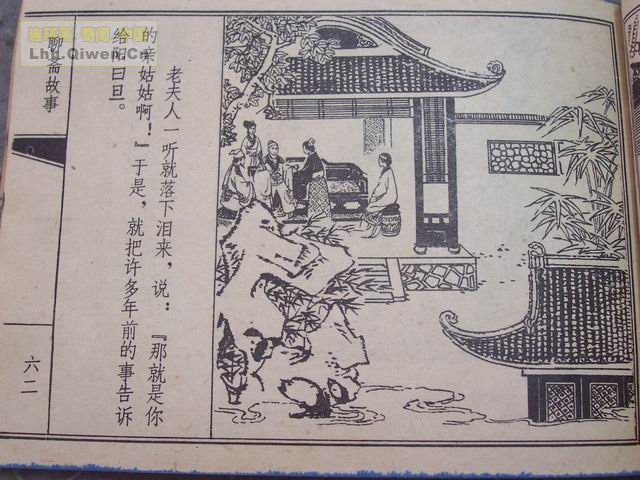 老夫人一听就落下泪来，说：『那就是你
的亲姑姑啊！』于是，就把许多年前的事告诉
给阳曰旦。
聊斋故事
六二